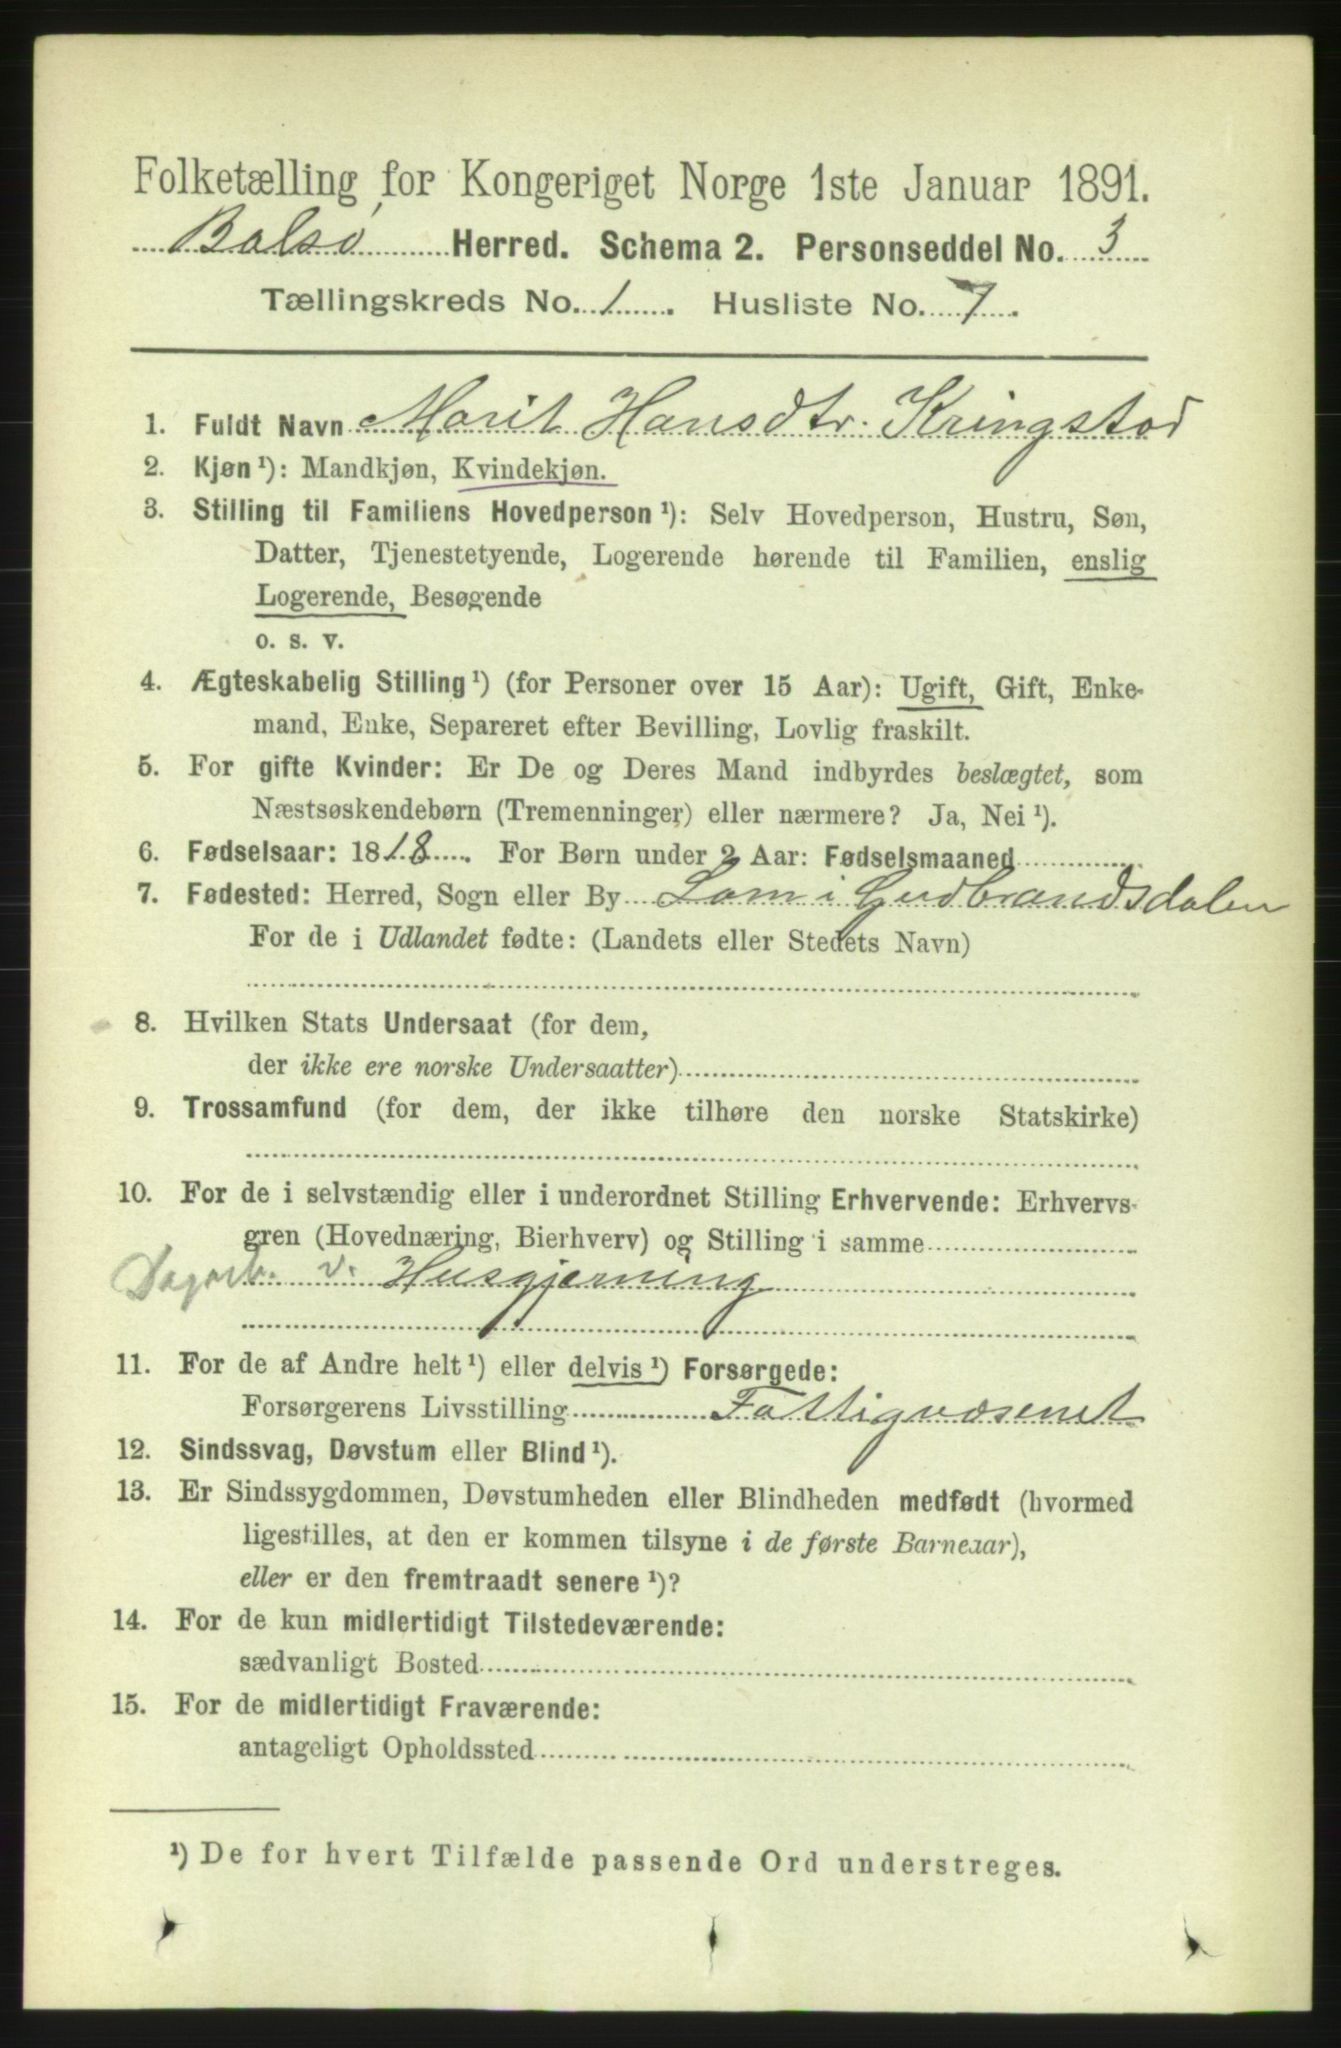 Folketælling for Kongeriget Norge 1ste Januar 1891.
Bolsø Herred. Schema 2. Personseddel No. 3
Tællingskreds No. 1. Husliste No. 7.
1. Fuldt Navn Marit Hansdtr. Kringstad
2. Kjøn ¹): Mandkjøn, Kvindekjøn.
3. Stilling til Familiens Hovedperson ¹): Selv Hovedperson, Hustru, Søn,
Datter, Tjenestetyende, Logerende hørende til Familien, enslig
Logerende, Besøgende
o. s. v.
4. Ægteskabelig Stilling ¹) (for Personer over 15 Aar): Ugift, Gift, Enke-
mand, Enke, Separeret efter Bevilling, Lovlig fraskilt.
5. For gifte Kvinder: Er De og Deres Mand indbyrdes beslægtet, som
Næstsøskendebørn (Tremenninger) eller nærmere? Ja, Nei ¹).
6. Fødselsaar: 1818. For Børn under 2 Aar: Fødselsmaaned
7. Fødested: Herred, Sogn eller By Lom i Gudbrandsdalen
For de i Udlandet fødte: (Landets eller Stedets Navn)
8. Hvilken Stats Undersaat (for dem,
der ikke ere norske Undersaatter)
9. Trossamfund (for dem, der ikke tilhøre den norske Statskirke)
10. For de i selvstændig eller i underordnet Stilling Erhvervende: Erhvervs-
gren (Hovednæring, Bierhverv) og Stilling i samme
Dagarb. v. Husgjerning
11. For de af Andre helt ¹) eller delvis ¹) Forsørgede:
Forsørgerens Livsstilling Fattigvæsenet
12. Sindssvag, Døvstum eller Blind ¹).
13. Er Sindssygdommen, Døvstumheden eller Blindheden medfødt (hvormed
ligestilles, at den er kommen tilsyne i de første Barneaar),
eller er den fremtraadt senere ¹)?
14. For de kun midlertidigt Tilstedeværende:
sædvanligt Bosted
15. For de midlertidigt Fraværende:
antageligt Opholdssted
¹) De for hvert Tilfælde passende Ord understreges.